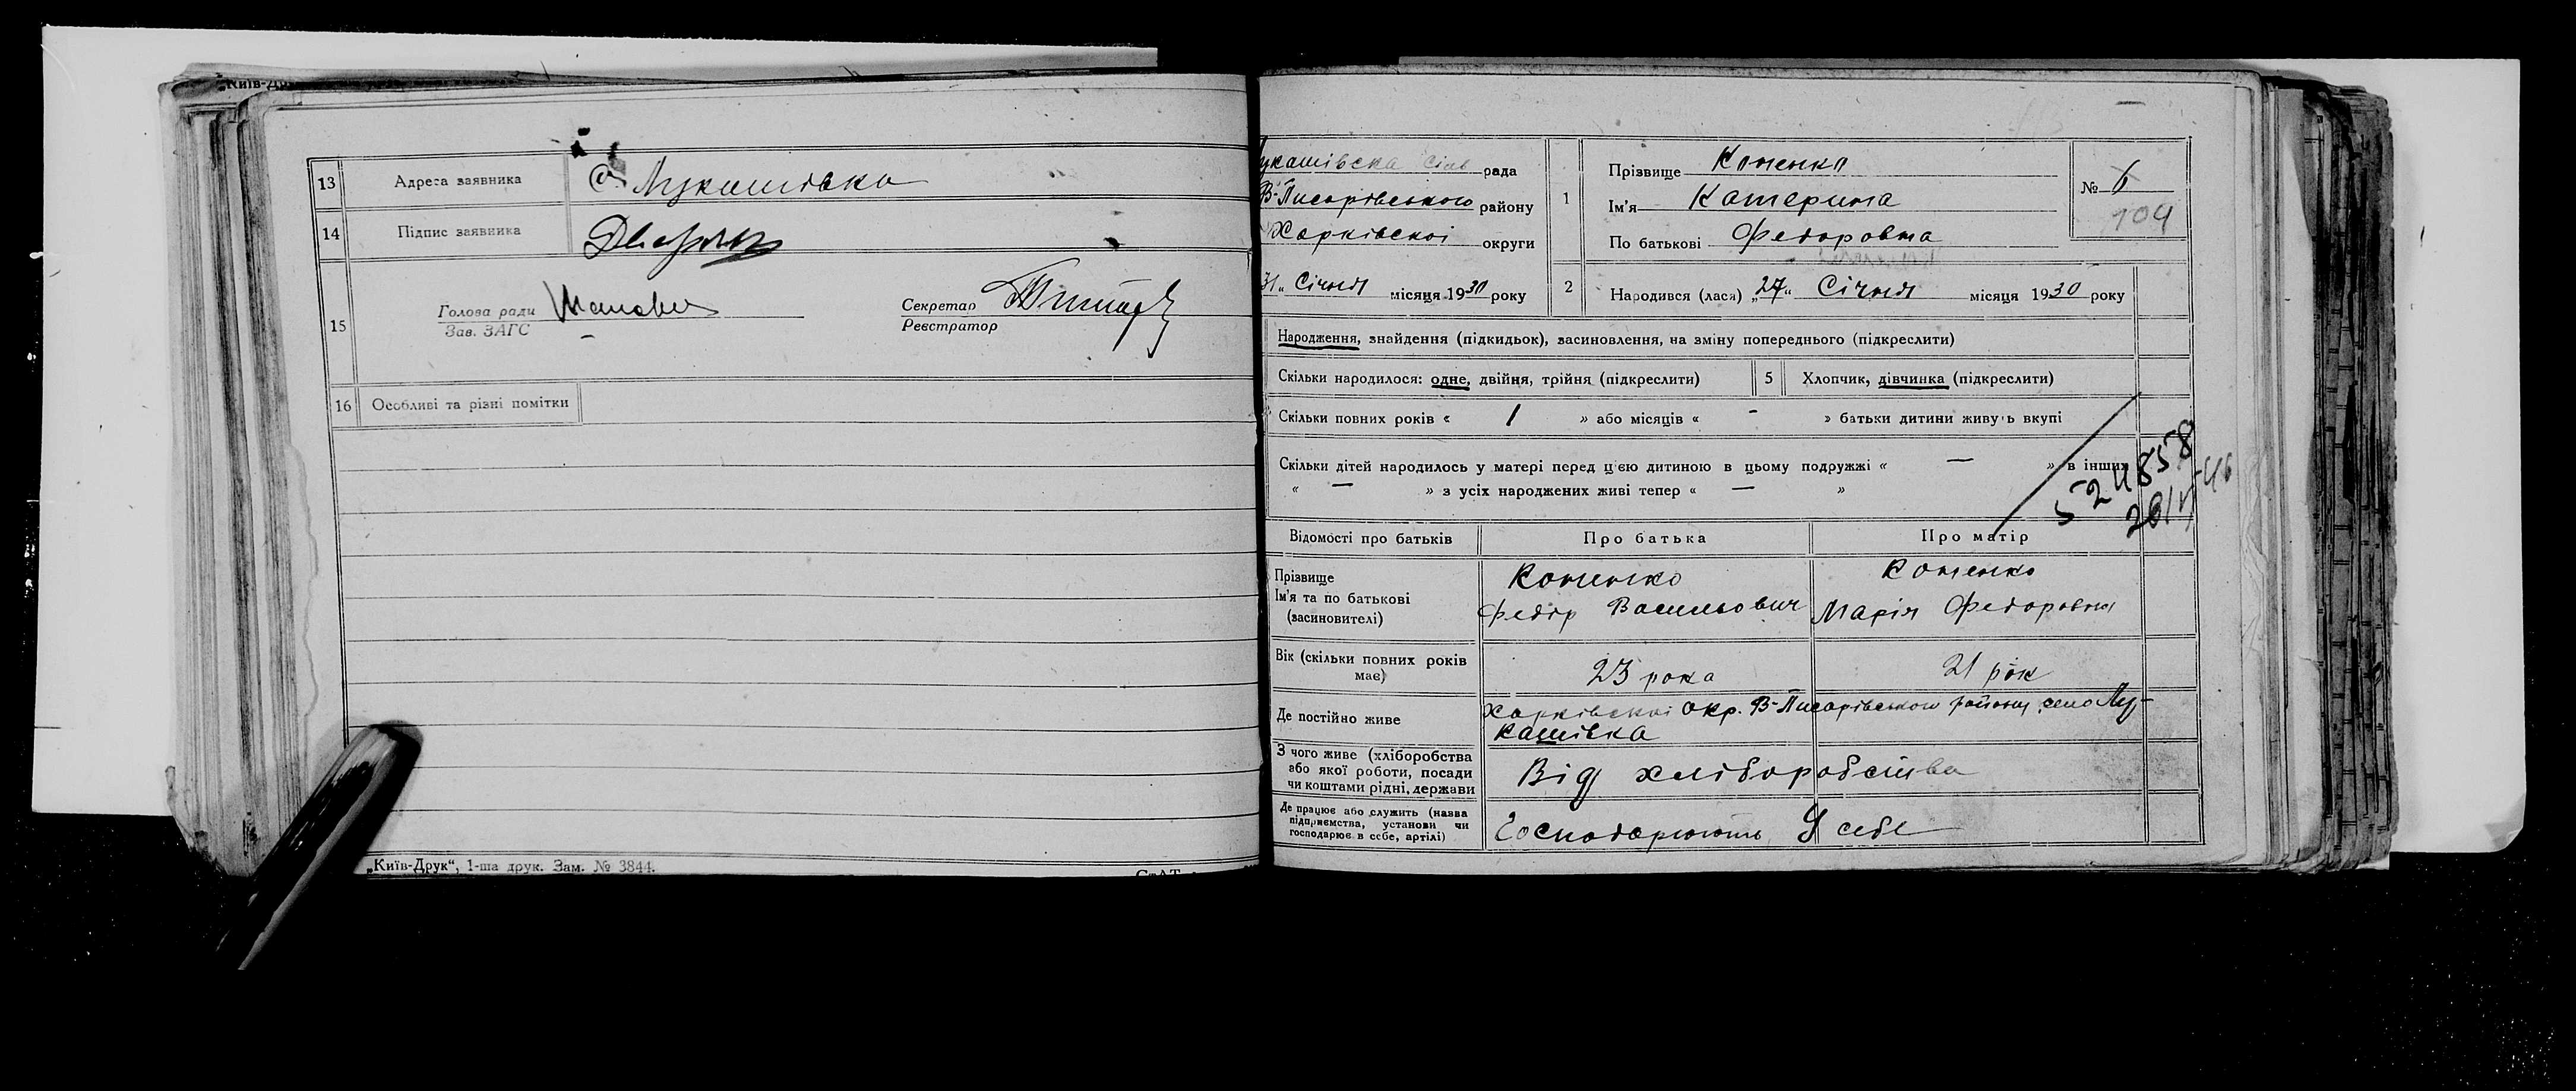 „Київ-Др
13 Адреса заявника с. Лукашівка
14 Підпис заявника
15 Голова ради
Зав. ЗАГС
Секретар
Реєстратор
16 Особливі та різні помітки
„Київ-Друк“, 1-ша друк. Зам. № 3844.
укашівська сіль рада
В-Писарівського району
Харківскої округи
31 „ Січня місяця 1930 року
1 Прізвище Коненко
Ім'я Катерина
По батькові Федоровна
№ 6
104
2 Народився (лася) „27“ Січня місяця 1930 року
Народження, знайдення (підкидьок), засиновлення, на зміну попереднього (підкреслити)
Скільки народилося: одне, двійня, трійня (підкреслити) 5 Хлопчик, дівчинка (підкреслити)
Скільки повних років « 1 » або місяців « - » батьки дитини живуть вкупі
Скільки дітей народилось у матері перед цією дитиною в цьому подружжі « — » в інших
« — » з усіх народжених живі тепер « — »
524858
Відомості про батьків Про батька Про матір
Прізвище Коненко Коненко
Ім'я та по батькові Федір Васильович Марія Федоровна
(засиновителі)
Вік (скільки повних років має) 23 рока 21 рік
Де постійно живе Харківскої Окр. В-Писарівського району село Лу-
кашівка
З чого живе (хліборобства
або якої роботи, посади
чи коштами рідні, держави Від хліборобства
Де працює або служить (назва
підприємства, установи чи
господарює в себе, артілі) Господарюють У себе